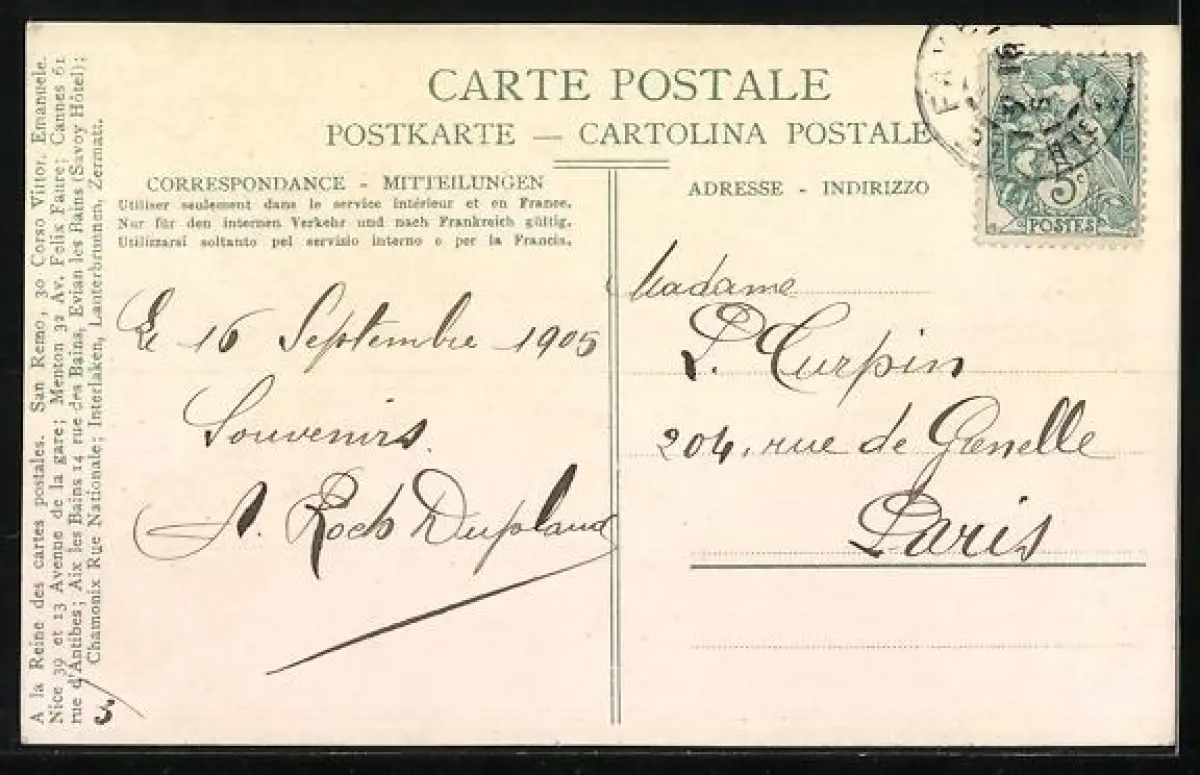 CARTE POSTALE
POSTKARTE — CARTOLINA POSTALE
CORRESPONDANCE - MITTEILUNGEN
Utiliser seulement dans le service intérieur et en France.
Nur für den internen Verkehr und nach Frankreich gültig.
Utilizzarsi soltanto pel servizio interno e per la Francia.
ADRESSE - INDIRIZZO
5c
POSTES
Le 16 Septembre 1905
Souvenirs.
A. Roch Dupland
Madame
L. Turpin
204, rue de Grenelle
Paris
A la Reine des cartes postales. San Remo, 30 Corso Vittor. Emanuele.
Nice 39 et 13 Avenue de la gare; Menton 32 Av. Felix Faure; Cannes 61
rue d'Antibes; Aix les Bains 14 rue des Bains, Evian les Bains (Savoy Hôtel);
Chamonix Rue Nationale; Interlaken, Lauterbrunnen, Zermatt.
3